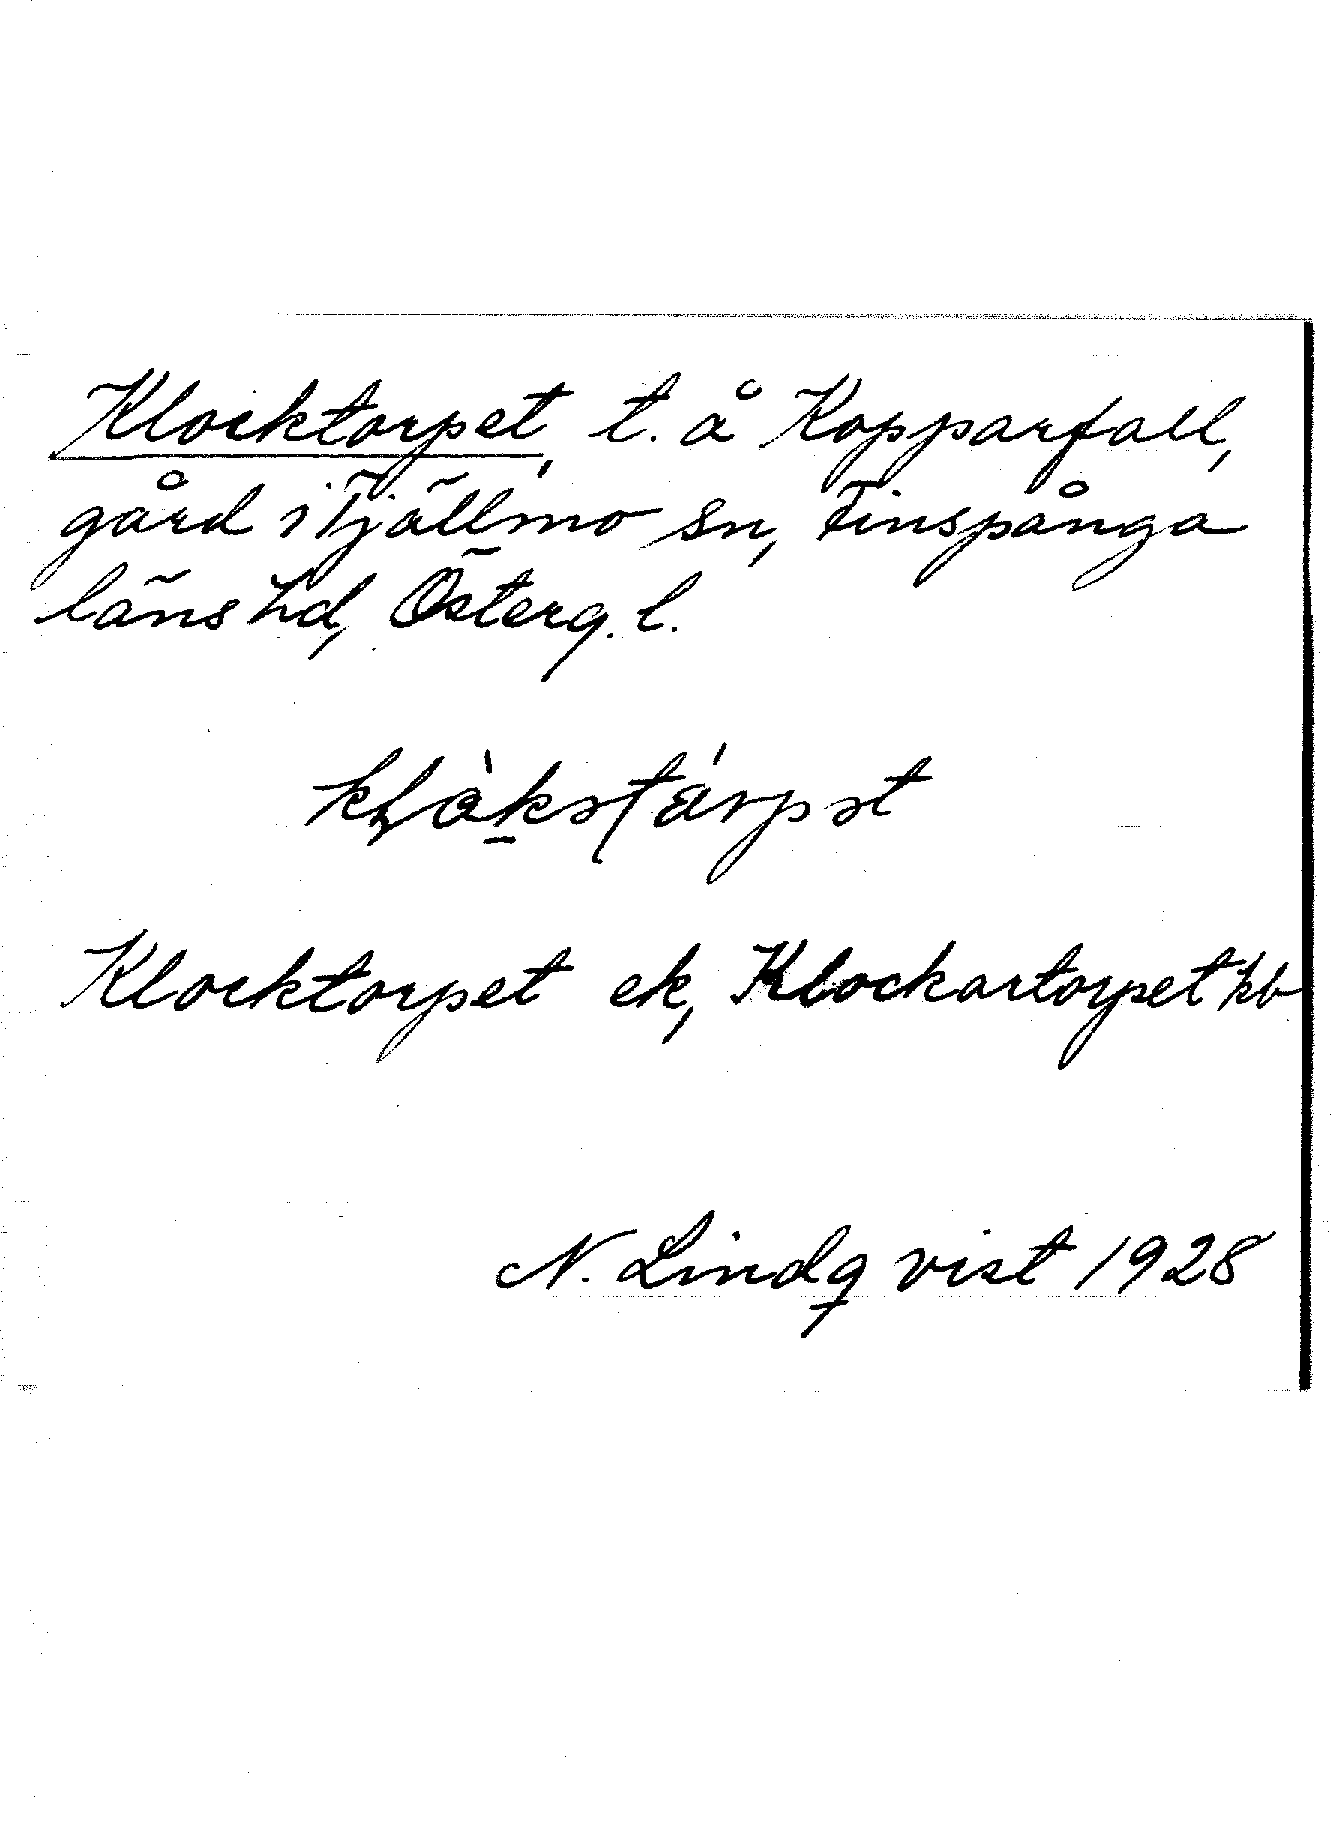 Klocktorpet, t. å Kopparfall,
gård i Tjällmo sn, Finspånga
läns hd, Österg. l.
Klocktorpet ek, Klockartorpet kb
N. Lindqvist 1928